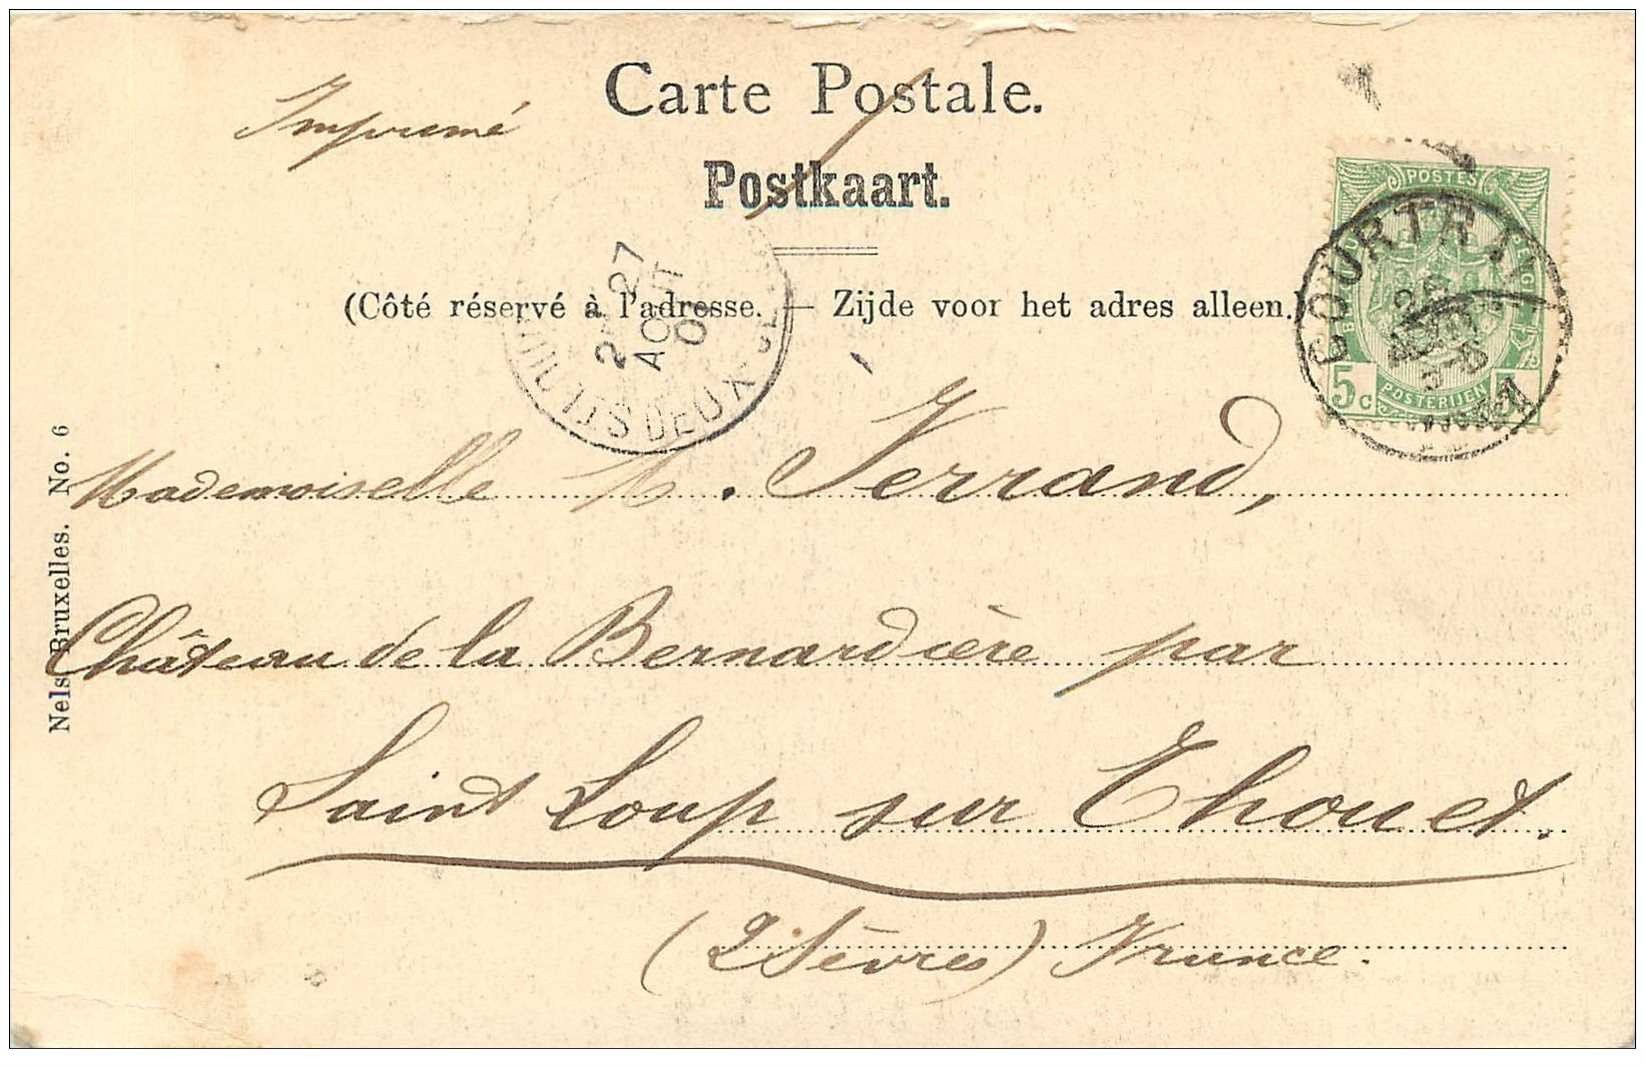 Imprimé
Carte Postale.
Postkaart.
(Côté réservé à l'adresse. — Zijde voor het adres alleen.)
POSTES
BELGIQUE
5c
POSTERIJEN
COURTRAI
27
AOUT
DEUX
Mademoiselle Ferrand,
Château de la Bernardière par
Saint Loup sur Thouet.
(2 Sèvres) France.
Nels Bruxelles. No. 6